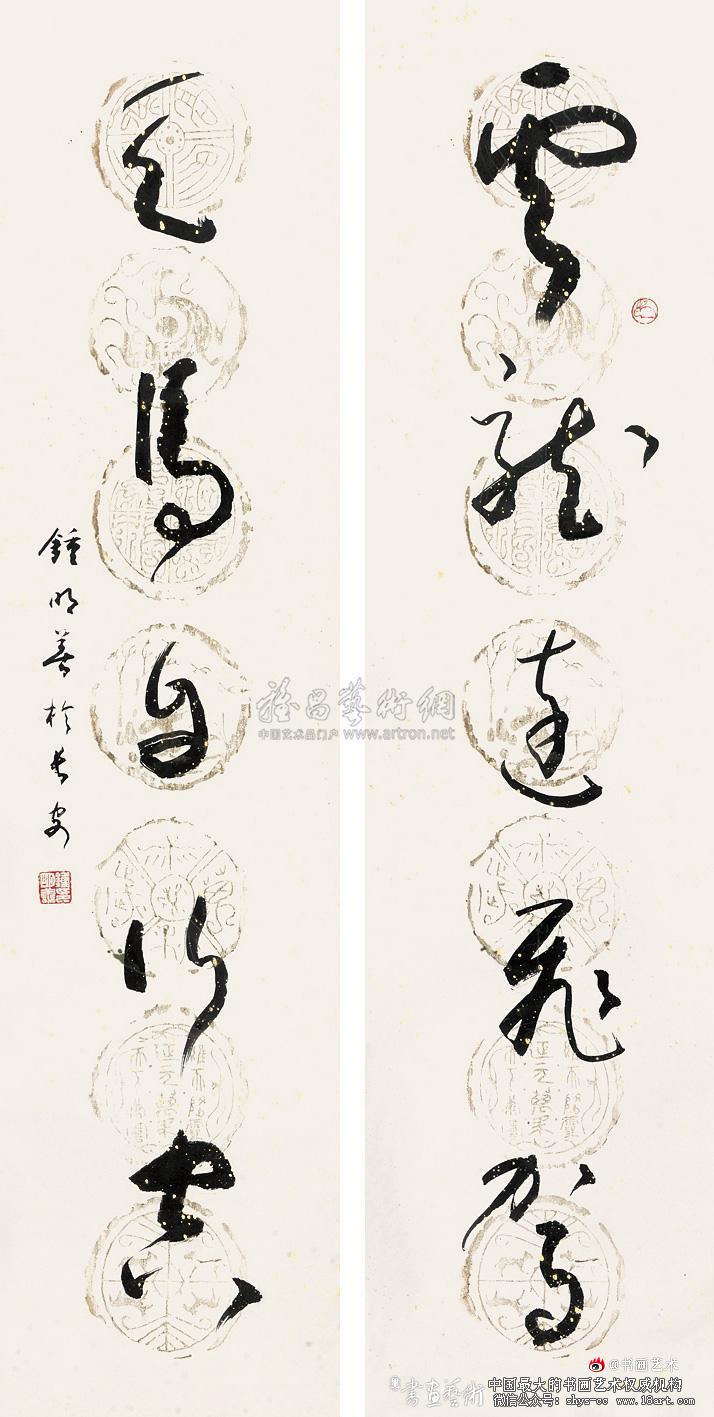 雲龍遠飛駕
天馬自行空
鍾明善於長安
雅昌藝術網
中国艺术品门户 www.artron.net
@书画艺术
書画藝術
中国最大的书画艺术权威机构
微信公众号: shys-cc www.18art.com